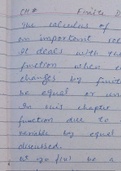 CH# Finite D
The calculus of
an important ro
It deals with
function when
changes by finite
be equal or un
In this chapter
function due to
variable by equal
discussed.
f(x) be a